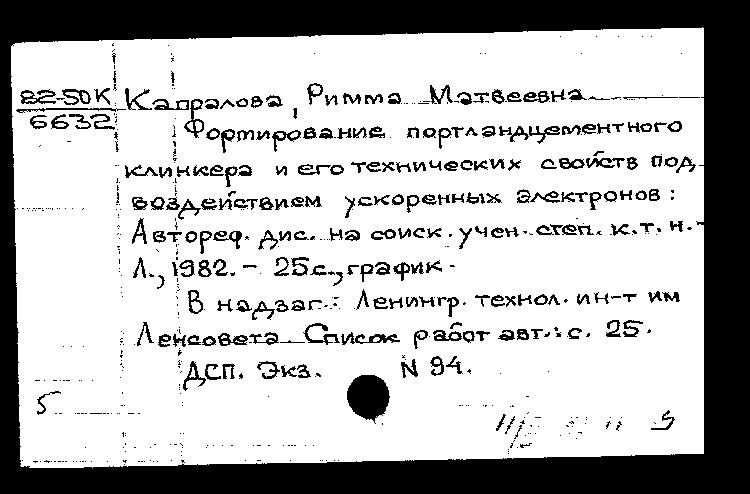 82-50К Капралова, Римма Матвеевна
6632 Формирование портландцементного
клинкера и его технических свойств под
воздействием ускоренных электронов:
Автореф. дис. на соиск. учен. степ. к.т.н. -
Л., 1982. - 25с., график.
В надзаг.: Ленингр. технол. ин-т им
Ленсовета. Список работ авт.: с. 25.
ДСП. Экз. N 94.
5